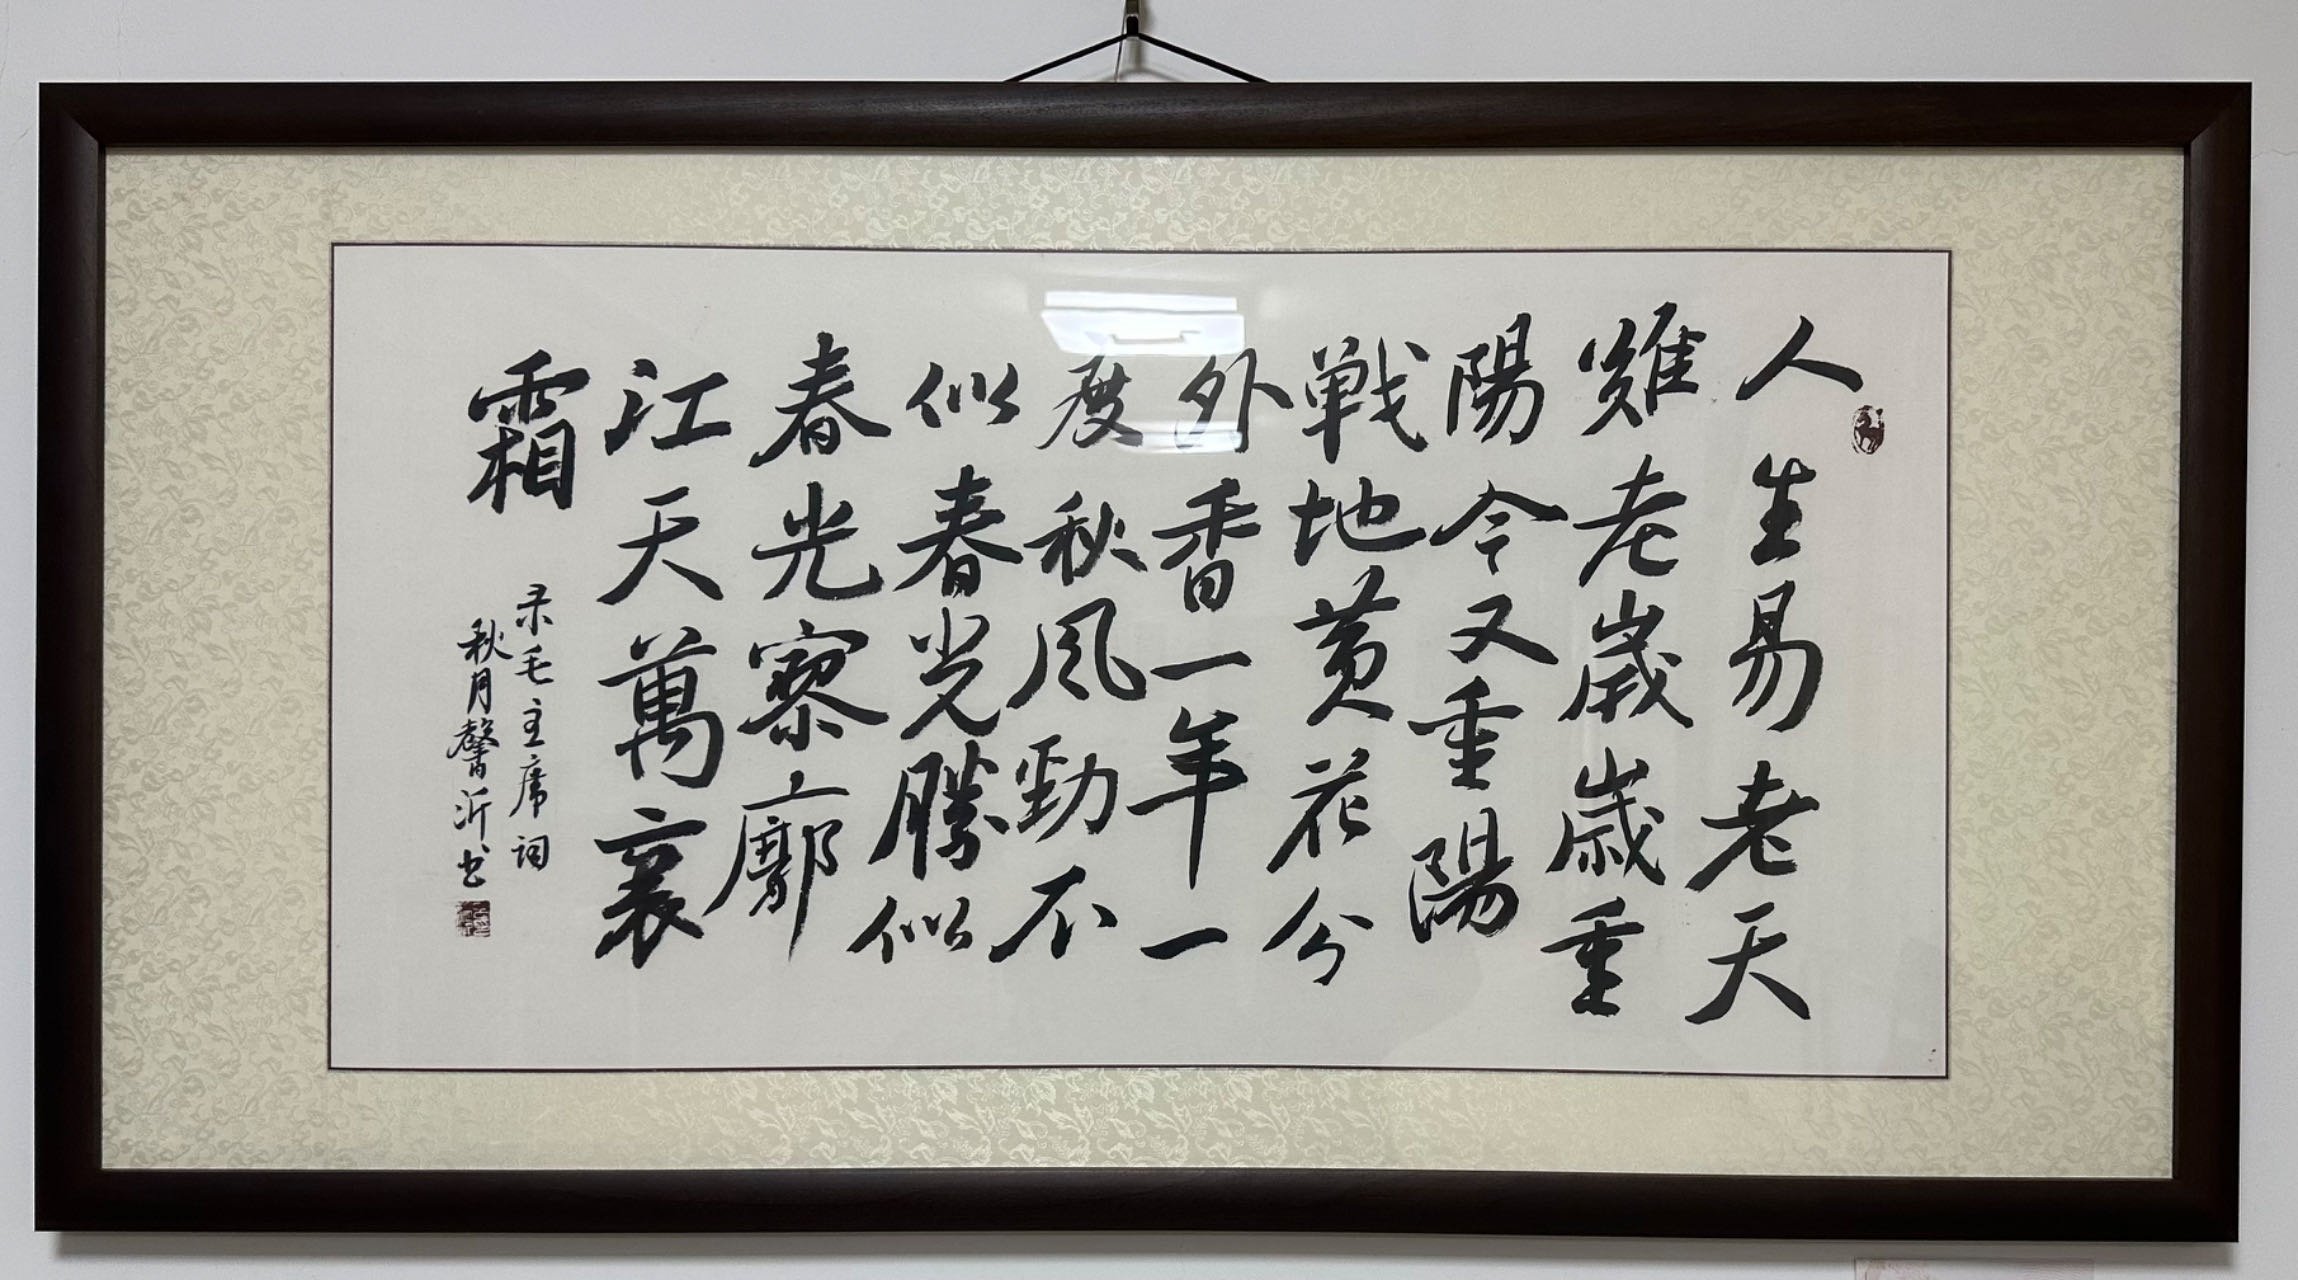 人生易老天
難老歲歲重
陽今又重陽
戰地黄花分
外香一年一
度秋風勁不
似春光勝似
春光寥廓
江天萬裏
霜
录毛主席词
秋月馨沂书